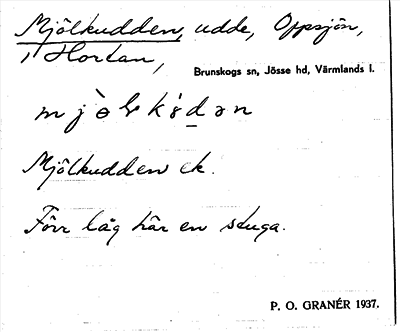 Mjölkudden, udde, Oppsjön,
i Hortan,
Brunskogs sn, Jösse hd, Värmlands l.
Mjölkudden ek.
Förr låg här en stuga.
P. O. GRANÉR 1937.